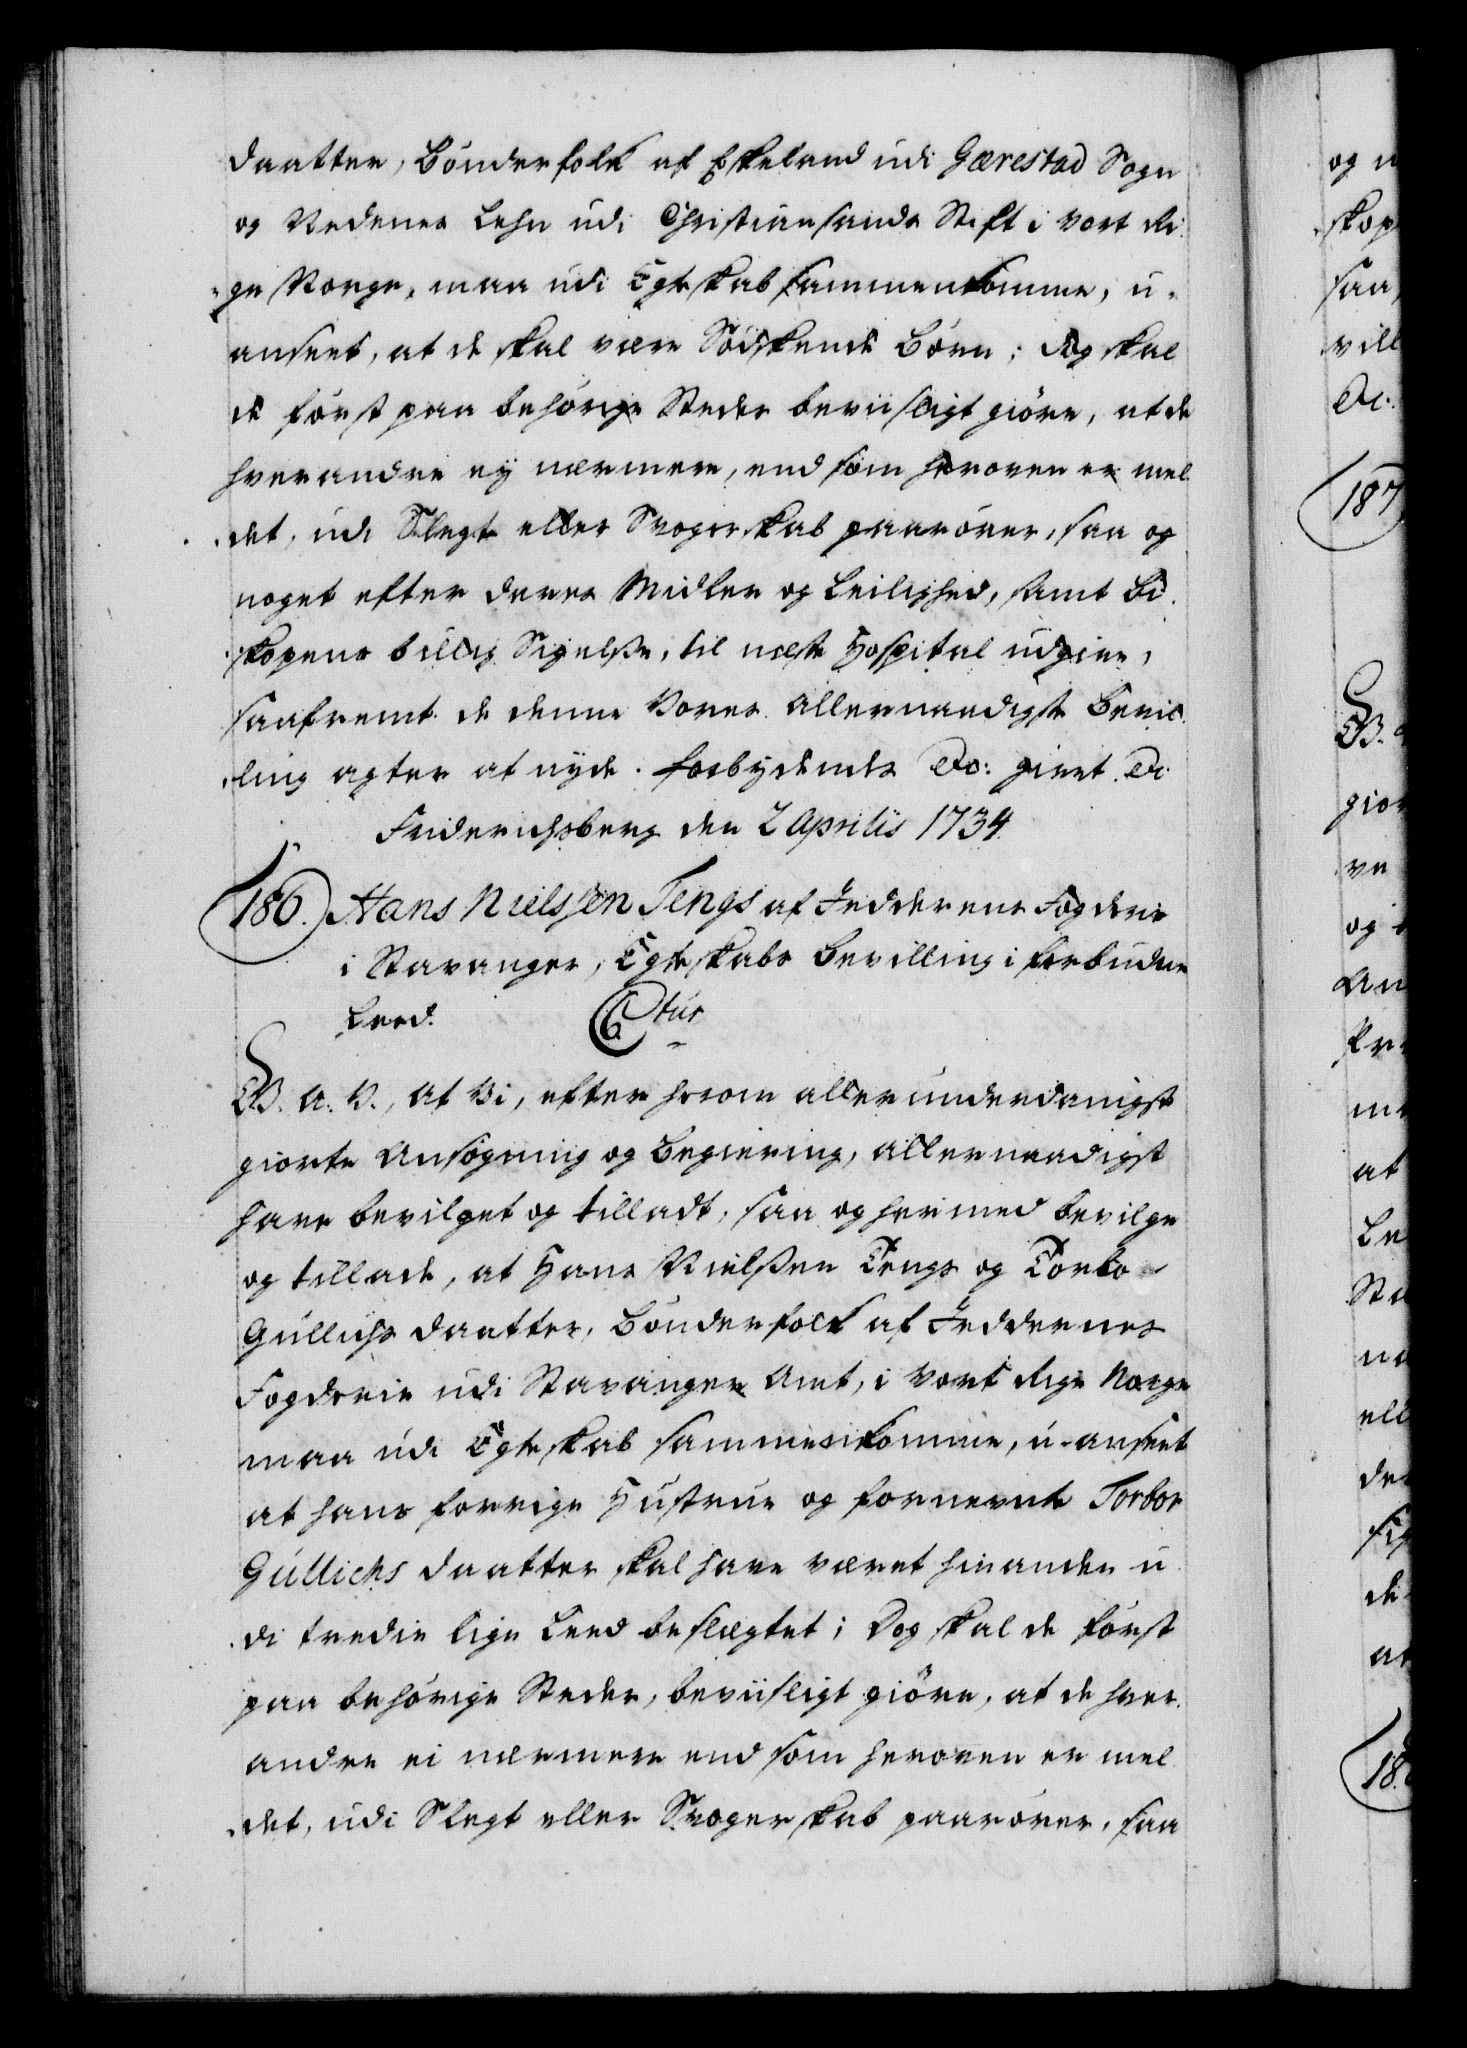 daatter, Bønderfolk af Eskeland udi Gærestad Sogn
og Nedenes Lehn udi Christiansands Stift i Vort Ri-
ge Norge, maa udi Egteskab sammenkomme, u-
anseet, at de skal være Södskende Börn; dog skal
de först paa behörige Steder beviisligt giöre, at de
hverandre ej nærmere, end som heroven er mel-
det, udi Slegt eller Svogerskab paarörer, saa og
noget efter deres Midler og Leilighed, samt Bi-
skopens billig Sigelße, til næste Hospital udgive,
saafremt de denne Vores allernaadigste Bevil-
ling agter at nyde. Forbydendes &c: givet &c
Friderichsberg den 2 Aprilis 1734.
186. Hans Nielssen Tengs af Jedderens Fogderie
i Stavanger, Egteskabs Bevilling i forbudne
Leed. 6tus
G. A. V., at Vi, efter herom allerunderdanigst
giorte Ansögning og Begiering, allernaadigst
have bevilget og tilladt, saa og hermed bevilge
og tillade, at Hans Nielßen Tengs og Torbo
Gullichs daatter, Bönderfolk af Jeddernes
Fogderie udi Stavanger Amt, i Vort Rige Norge
maa udi Egteskab sammenkomme, u-anseet
at hans forrige Hustrue og fornevnte Torbor
Gullichs daatter skal have været hinanden u-
di tredie lige Leed beslægtet; Dog skal de först
paa behörige Steder, beviisligt giöre, at de hver-
andre ei nærmere end som heroven er mel-
det, udi Slegt eller Svogerskab paarörer, saa
og
skop
saa
vill
&c.
187
G.
gior
ve
og
An
at
Le
Sta
na
ell
de
at
18